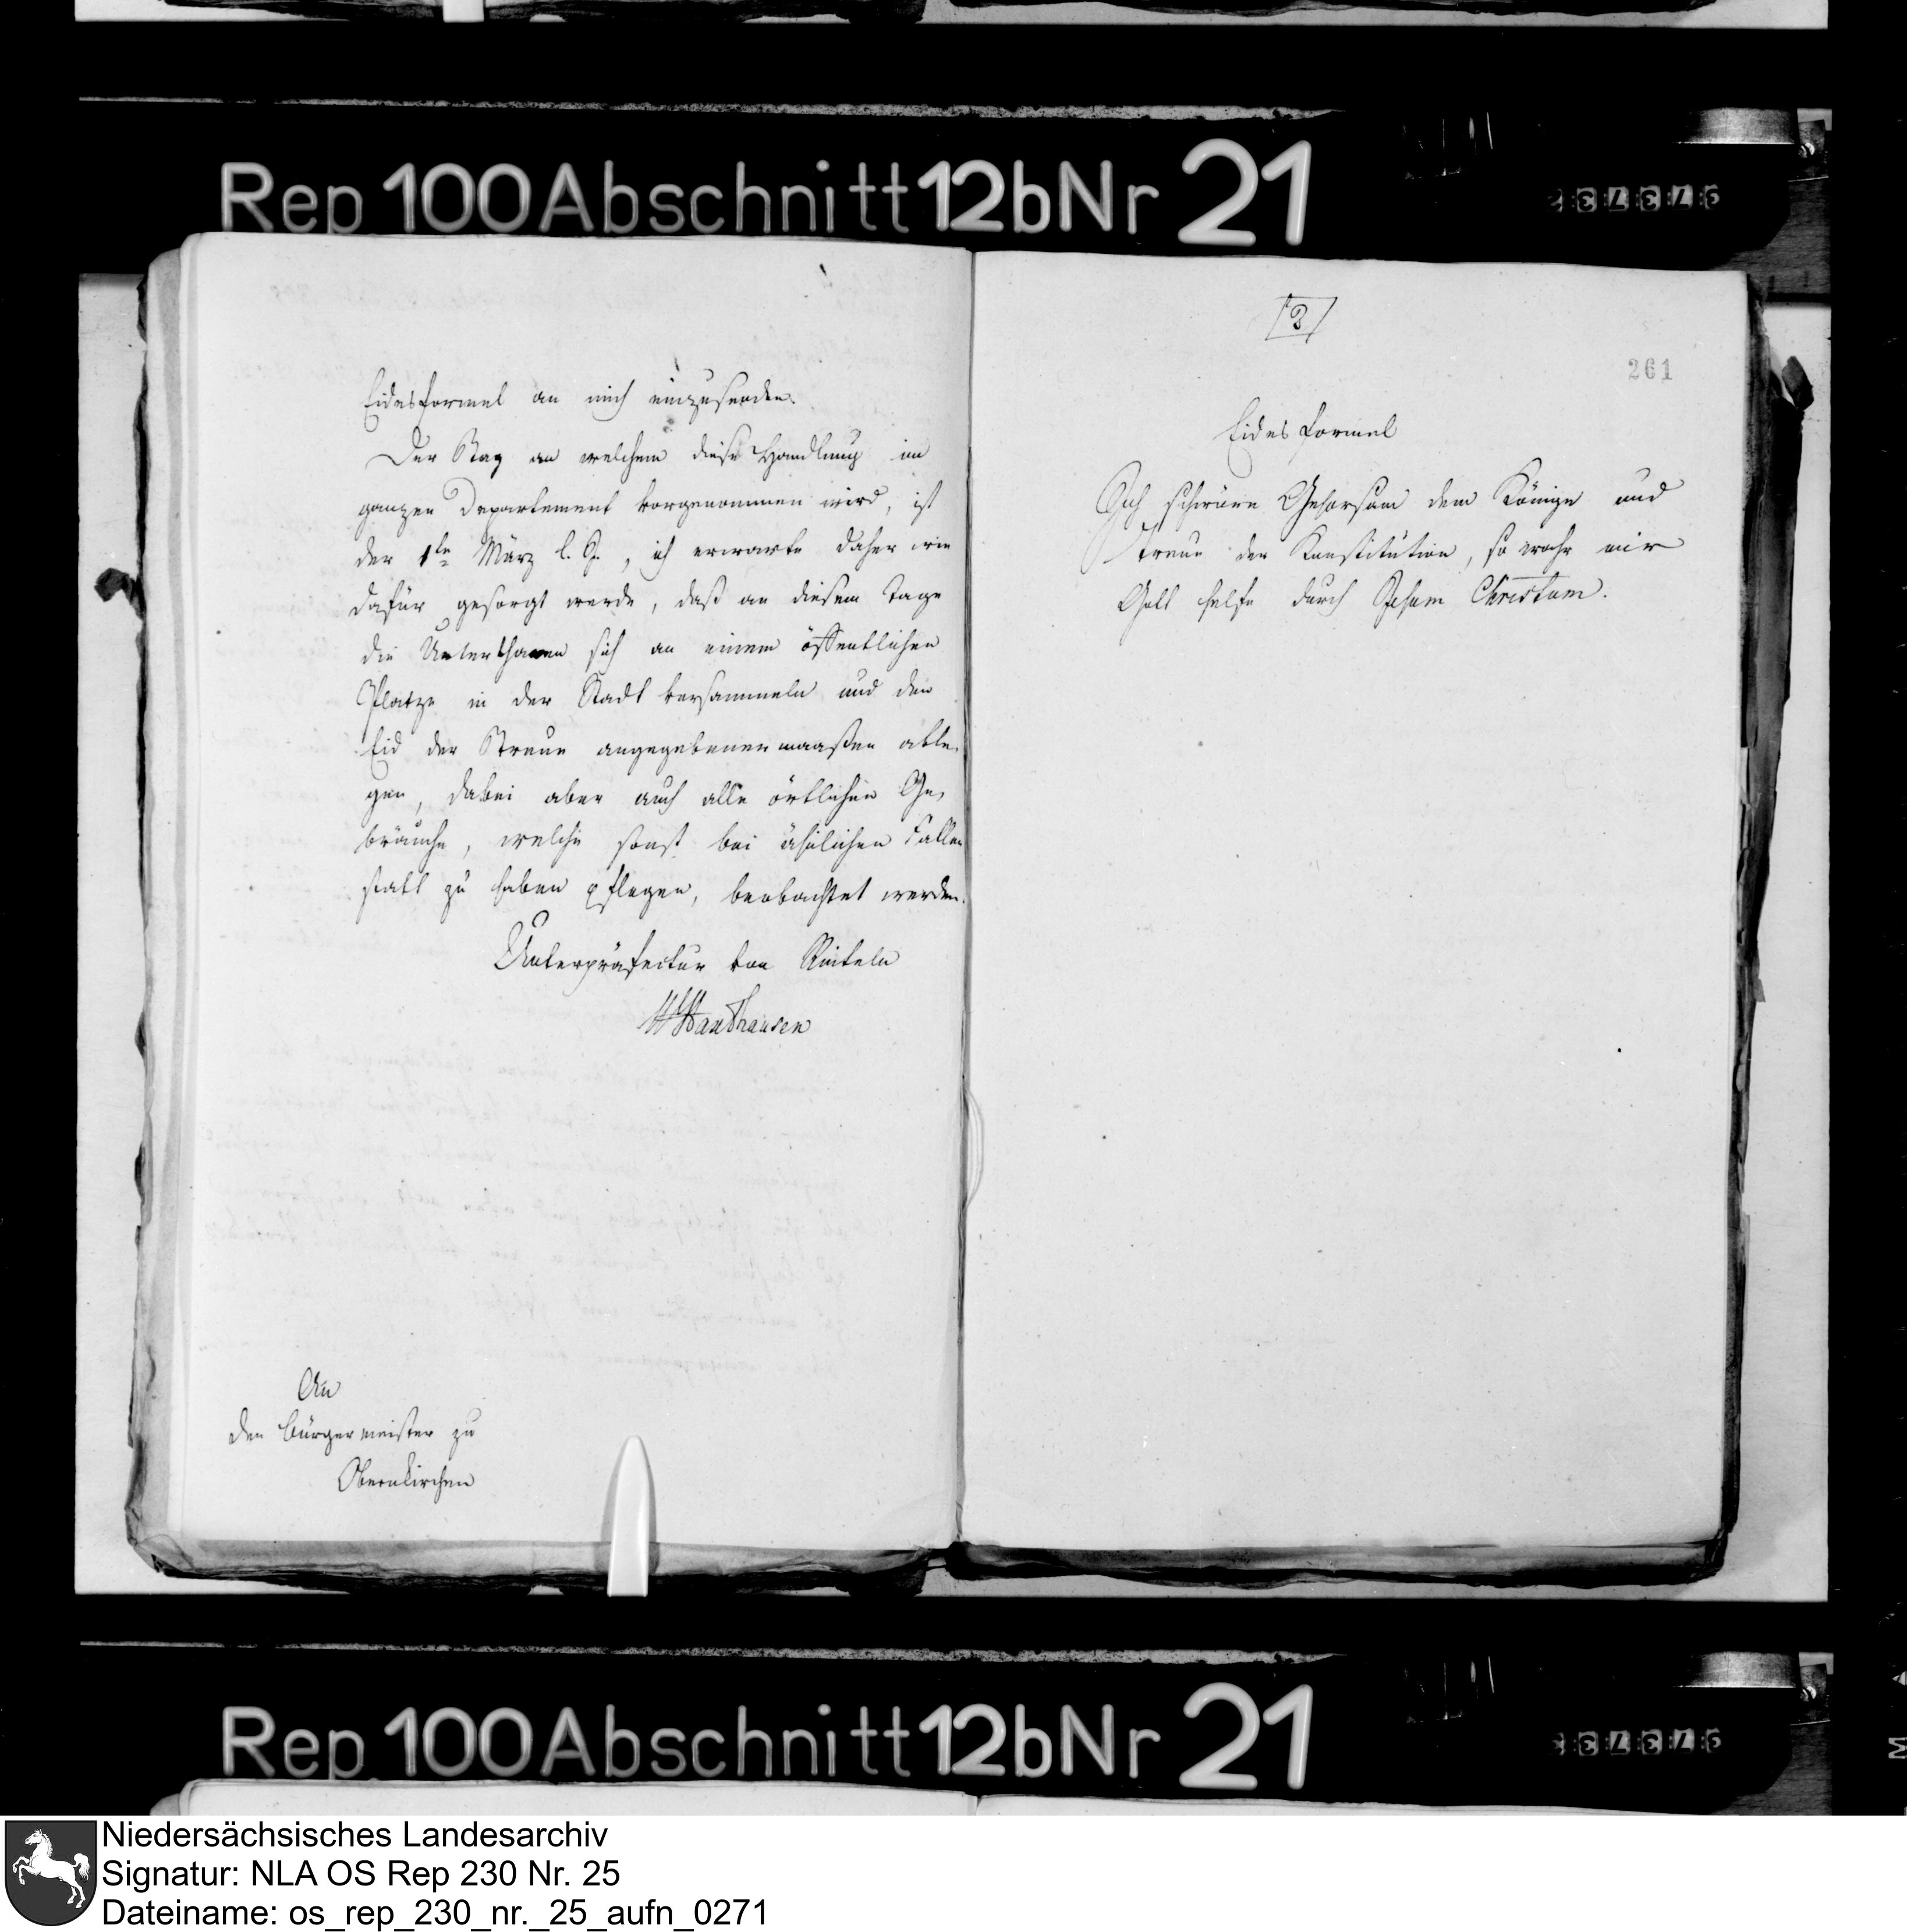 Rep 100 Abschnitt 12b Nr 21
Eidesformel an mich einzusenden.
Der Tag an welchem diese Handlung im
ganzen Departement vorgenommen wird, ist
der 1te März l. J., ich erwarte daher wie
dafür gesorgt werde, daß an diesem Tage
die Unterthanen sich an einem öffentlichen
Platze in der Stadt versammeln und den
Eid der Treue angegebenermaaßen able,
gen, dabei aber auch alle örtlichen Ge,
bräuche, welche sonst bei ähnlichen Fällen
statt zu haben pflegen, beobachtet werden.
Unterpräfectur von Rinteln
An
den Bürgermeister zu
Obernkirchen
2
261
Eides formel
Ich schwöre Gehorsam dem Könige und
Treue der Konstitution, so wahr mir
Gott helfe durch Jesum Christum.
Rep 100 Abschnitt 12b Nr 21
Niedersächsisches Landesarchiv
Signatur: NLA OS Rep 230 Nr. 25
Dateiname: os_rep_230_nr._25_aufn_0271